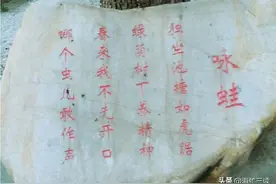 咏蛙
独坐池塘如虎踞
绿荫树下养精神
春来我不先开口
哪个虫儿敢作声
头条